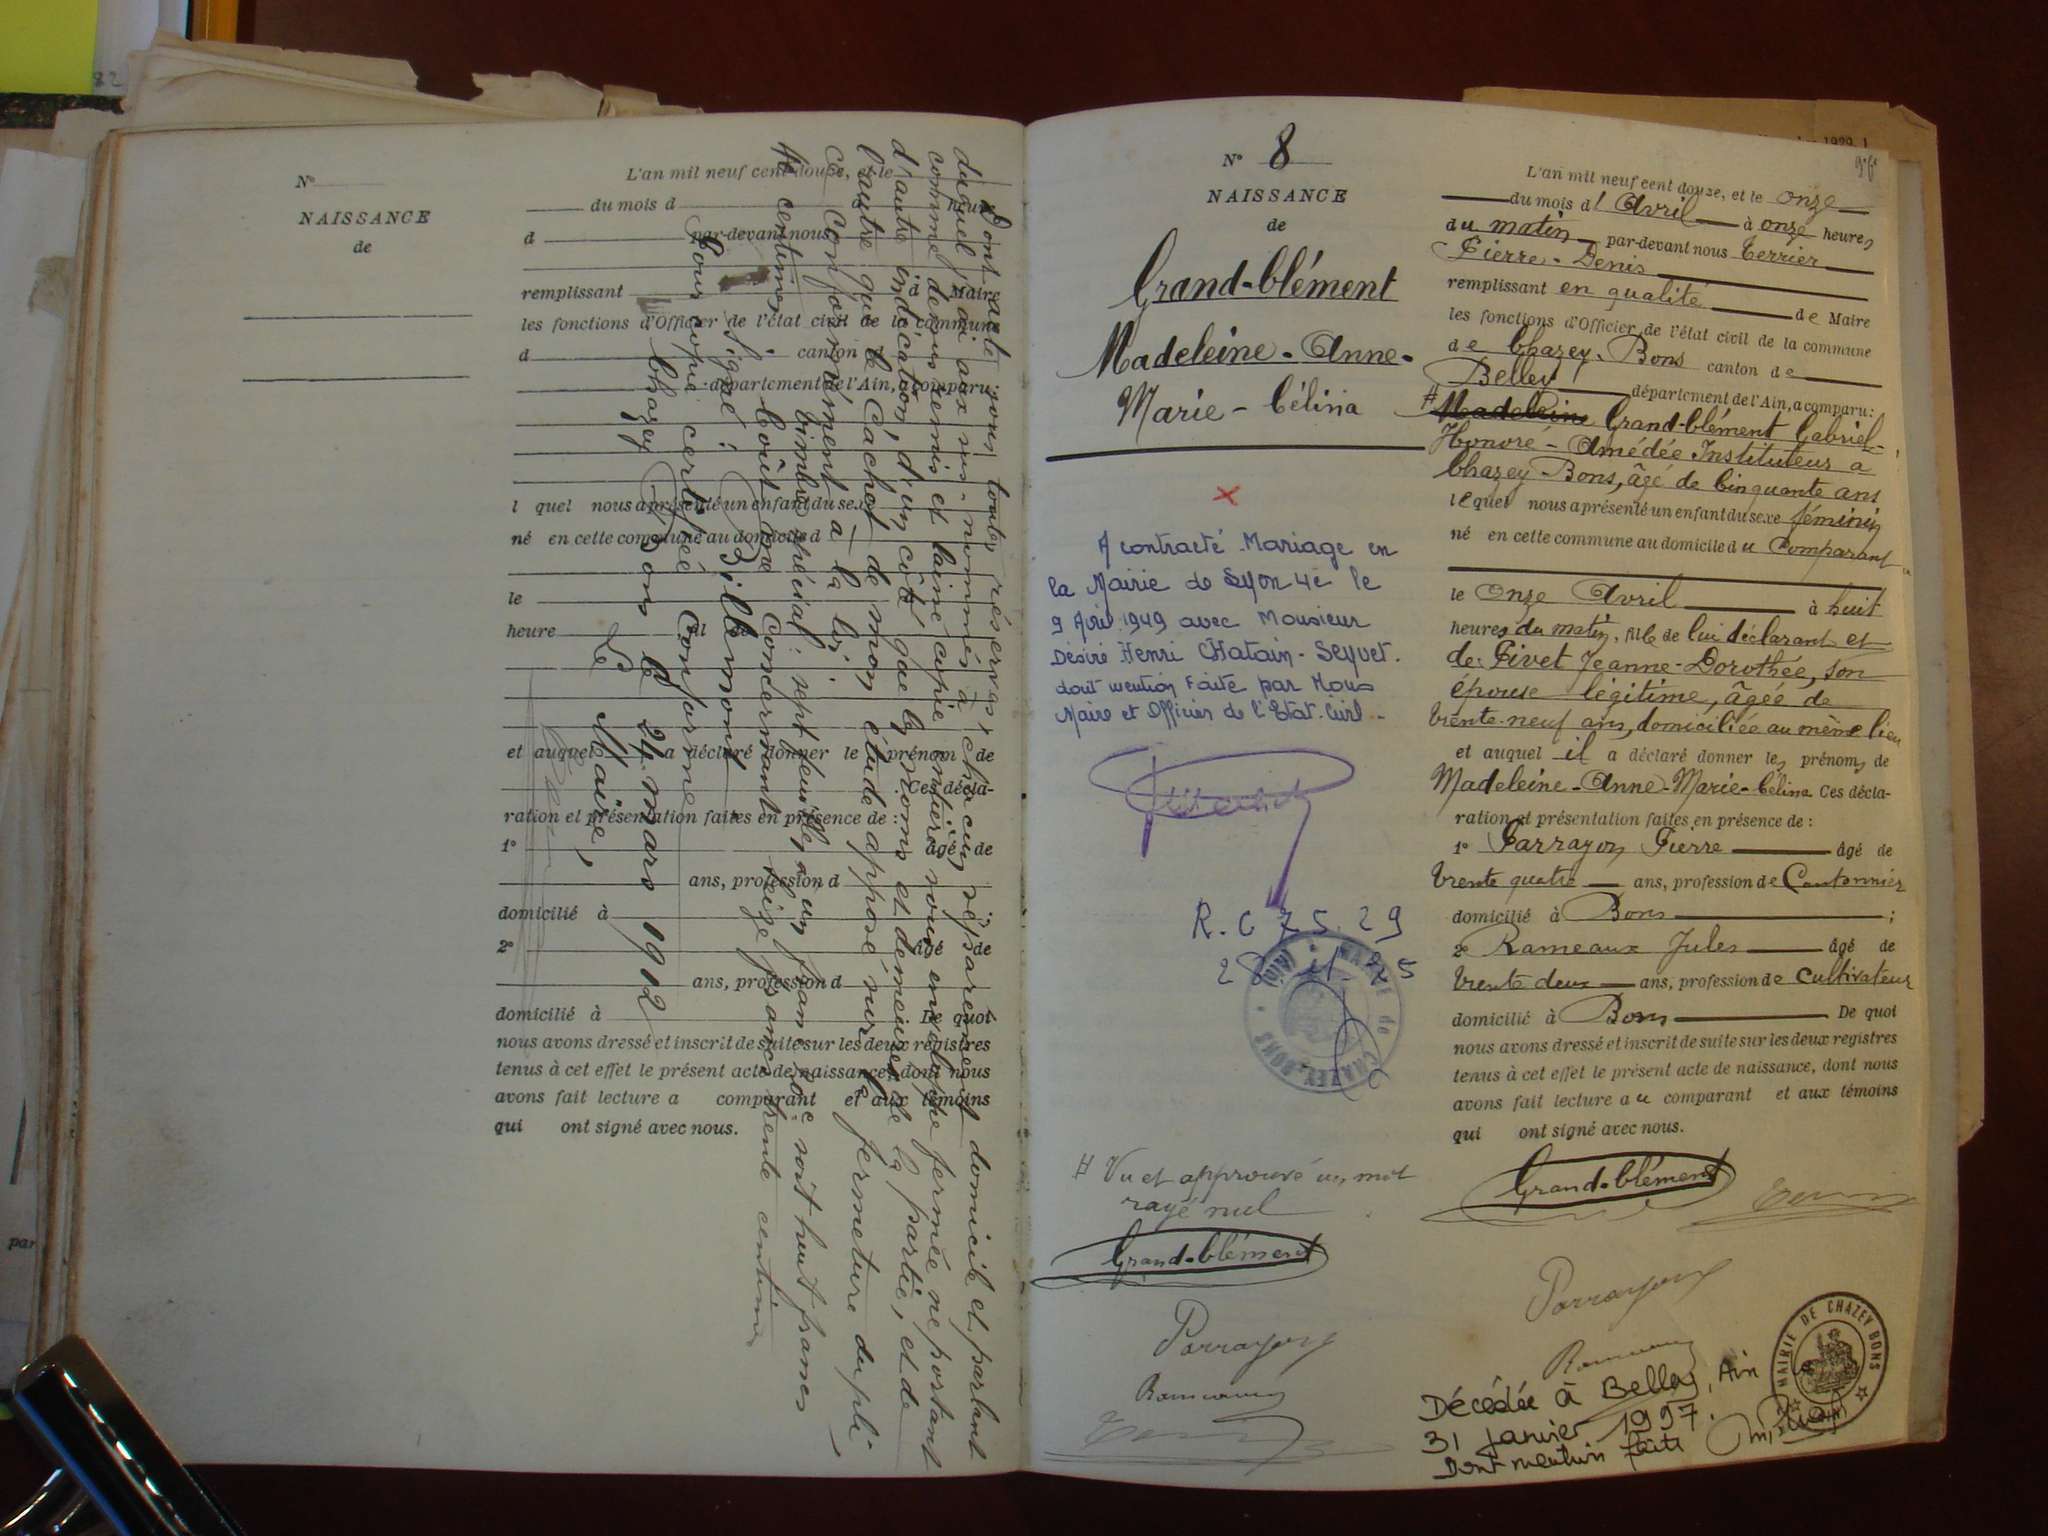 N°
NAISSANCE
de
L'an mil neuf cent douze, et le
du mois d à heure
d par-devant nous
remplissant à Maire
les fonctions d'Officier de l'état civil de la commune
d canton d
département de l'Ain, a comparu:
l quel nous a présenté un enfant du sexe
né en cette commune au domicile d
le
heure
et auquel a déclaré donner le prénom de
Ces décla-
ration et présentation faites en présence de :
1° âgé de
ans, profession d
domicilié à ;
2° âgé de
ans, profession d
domicilié à De quoi
nous avons dressé et inscrit de suite sur les deux registres
tenus à cet effet le présent acte de naissance, dont nous
avons fait lecture a comparant et aux témoins
qui ont signé avec nous.
Dont acte, sous toutes réserves,
duquel j'ai aux sus-nommés à chacun séparément domicile et parlant
comme dessus remis et laissé copie entière sous enveloppe fermée ne portant
d'autre indication, d'un côté que les noms et demeures de la partie, et de
l'autre que le cachet de mon étude apposé sur la fermeture du pli
Conformément à la loi.
Timbre spécial: sept feuilles à un franc soit huit francs
centimes
Coût Concernant seize francs trente centimes
Signé: Billemont
Pour copie certifiée conforme
Chazey Bons le 24 mars 1912
Le Maire,
N° 8
NAISSANCE
de
Grand-Clément
Madeleine-Anne-
Marie-Célina
A contracté Mariage en
la Mairie de Lyon 4e le
9 Avril 1949 avec Monsieur
Désiré Henri CHatain-Seyvet.
dont mention faite par Nous
Maire et Officier de l'Etat-Civil-
R.C 25.29
MAIRIE de CHAZEY-BONS
# Vu et approuvé un mot
rayé nul
Grand-Clément
Parrayon
L'an mil neuf cent douze, et le onze
du mois d'Avril à onze heures
du matin par-devant nous Terrier
Pierre-Denis
remplissant en qualité de Maire
les fonctions d'Officier de l'état civil de la commune
de Chazey-Bons canton de
Belley département de l'Ain, a comparu:
# Madeleine Grand-Clément Gabriel-
Honoré-Amédée Instituteur à
Chazey-Bons, âgé de Cinquante ans
lequel nous a présenté un enfant du sexe féminin
né en cette commune au domicile du Comparant
le Onze Avril à huit
heures du matin, fille de lui déclarant et
de: Pivet Jeanne-Dorothée, son
épouse légitime, âgée de
trente-neuf ans, domiciliée au même lieu
et auquel il a déclaré donner les prénoms de
Madeleine-Anne-Marie-Célina Ces décla-
ration et présentation faites en présence de :
1° Parrayon Pierre âgé de
trente quatre ans, profession de Cantonnier
domicilié à Bons ;
2° Rameaux Jules âgé de
trente deux ans, profession de cultivateur
domicilié à Bons De quoi
nous avons dressé et inscrit de suite sur les deux registres
tenus à cet effet le présent acte de naissance, dont nous
avons fait lecture au comparant et aux témoins
qui ont signé avec nous.
Grand-Clément
Parrayon
MAIRIE DE CHAZEY BONS
Décédée à Belley, Ain
31 janvier 1997.
Dont mention faite